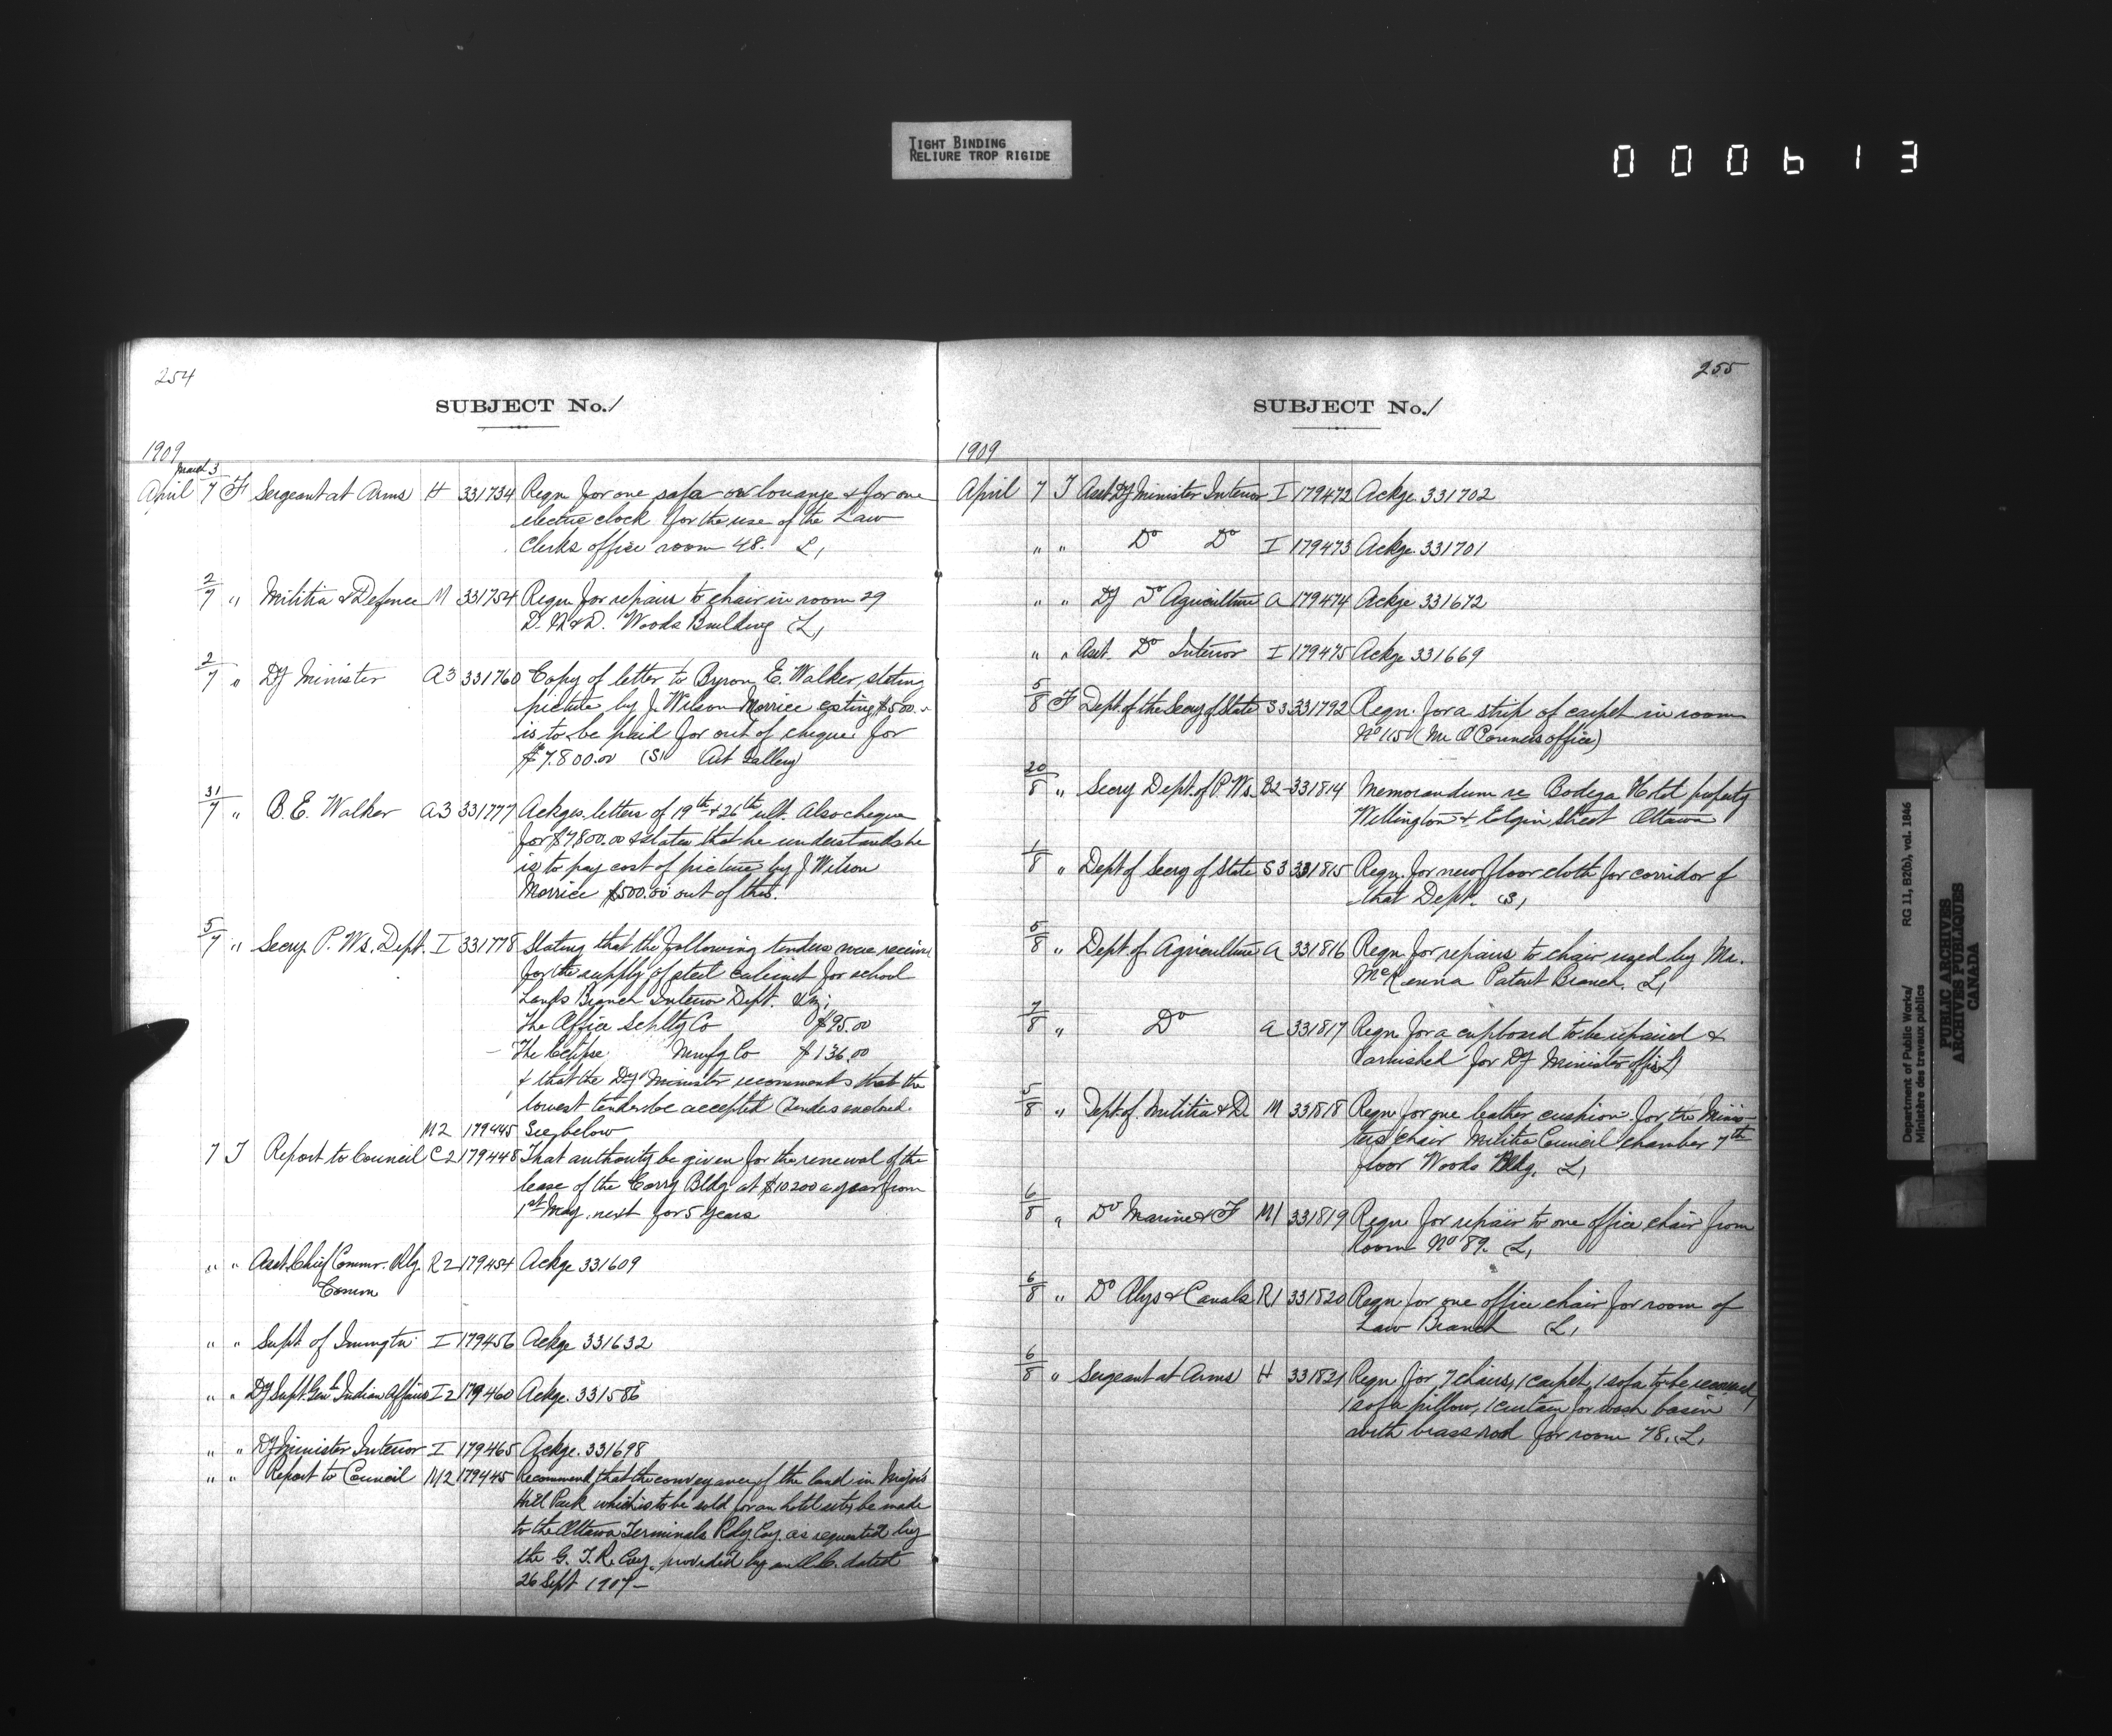 TIGHT BINDING
RELIURE TROP RIGIDE
000613
254
SUBJECT No. 1
1909
April March 3/7 F Sergeant at Arms H 331734 Reqn for one sofa or lounge & for one
electric clock for the use of the Law
Clerks office room 48. L,
2/7 " Militia & Defence M 331754 Reqn for repairs to chair in room 29
D. M & D. Woods Building L,
2/7 " Dy Minister A3 331760 Copy of letter to Byron E. Walker, stating
picture by J. Wilson Morrice costing $500.-
is to be paid for out of cheque for
$7.800.00 (S) Art Gallery
31/7 " B. E. Walker A3 331777 Ackges. letters of 19th & 26th ult. Also cheque
for $7800.00 & states that he understands he
is to pay cost of picture by J Wilson
Morrice $500.00 out of this.
5/7 " Secry. P. Ws. Dept. I 331778 Stating that the following tenders were receive
for the supply of steel cabinet for school
Lands Branch Interior Dept. viz;
The Office Splty Co $95.00
- The Eclipse Mnufg Co $136.00
& that the Dy Minister recommends that the
lowest tender be accepted (Tenders enclosed.
M2 179445 See below
7 T Report to Council C2 179448 That authority be given for the renewal of the
lease of the Corry Bldg at $10200 a year from
1st May next for 5 years
" " Asst. Chief Commr. Rly. R2 179454 Ackge 331609
Comm
" " Supt of Immgtn I 179456 Ackge 331632
" " Dy Supt. Genl Indian Affairs I2 179460 Ackge. 331586
" " Dy Minister Interior I 179465 Ackge. 331698
" " Report to Council M2 179445 Recommend, that the conveyance of the land in Major's
Hill Park which is to be sold for an hotel site, be made
to the Ottawa Terminals Rdy Coy. as requested by
the G. T. R. Coy. provided by an O.C. dated
26 Sept 1907 -
255
SUBJECT No. 1
1909
April 7 T Asst Dy Minister Interior I 179472 Ackge 331702
" " Do Do I 179473 Ackge. 331701
" " Dy Do Agriculture A 179474 Ackge 331672
" " Asst. Do Interior I 179475 Ackge 331669
5/8 F Dept. of the Secry of State S3 331792 Reqn. for a strip of carpet in room
No 115 (Mr O'Connors office)
20/8 " Secry Dept. of P. Ws. B2 331814 Memorandum re Bodega Hotel property
Wellington & Elgin Street Ottawa
1/8 " Dept of Secry of State S3 331815 Reqn. for new floor cloth for corridor of
that Dept. S,
5/8 " Dept of Agriculture A 331816 Reqn for repairs to chair used by Mr.
McKenna Patent Branch. L,
7/8 " Do A 331817 Reqn for a cupboard to be repaired &
varnished for Dy Minister office L)
5/8 " Dept of. Militia & D M 331818 Reqn for one leather cushion for the Minis-
ters chair Militia Council chamber 7th
floor Woods Bldg. L,
6/8 " Do Marine & F M1 331819 Reqn for repair to one office chair from
Room No 89. L,
6/8 " Do Rlys & Canals R1 331820 Reqn for one office chair for room of
Law Branch L,
6/8 " Sergeant at Arms H 331821 Reqn for 7 chairs, 1 carpet, 1 sofa to be recovered,
1 sofa pillow, 1 curtain for wash basin
with brass rod for room 78. L,
Department of Public Works/ RG 11, B2(b), vol. 1846
Ministère des travaux publics
PUBLIC ARCHIVES
ARCHIVES PUBLIQUES
CANADA